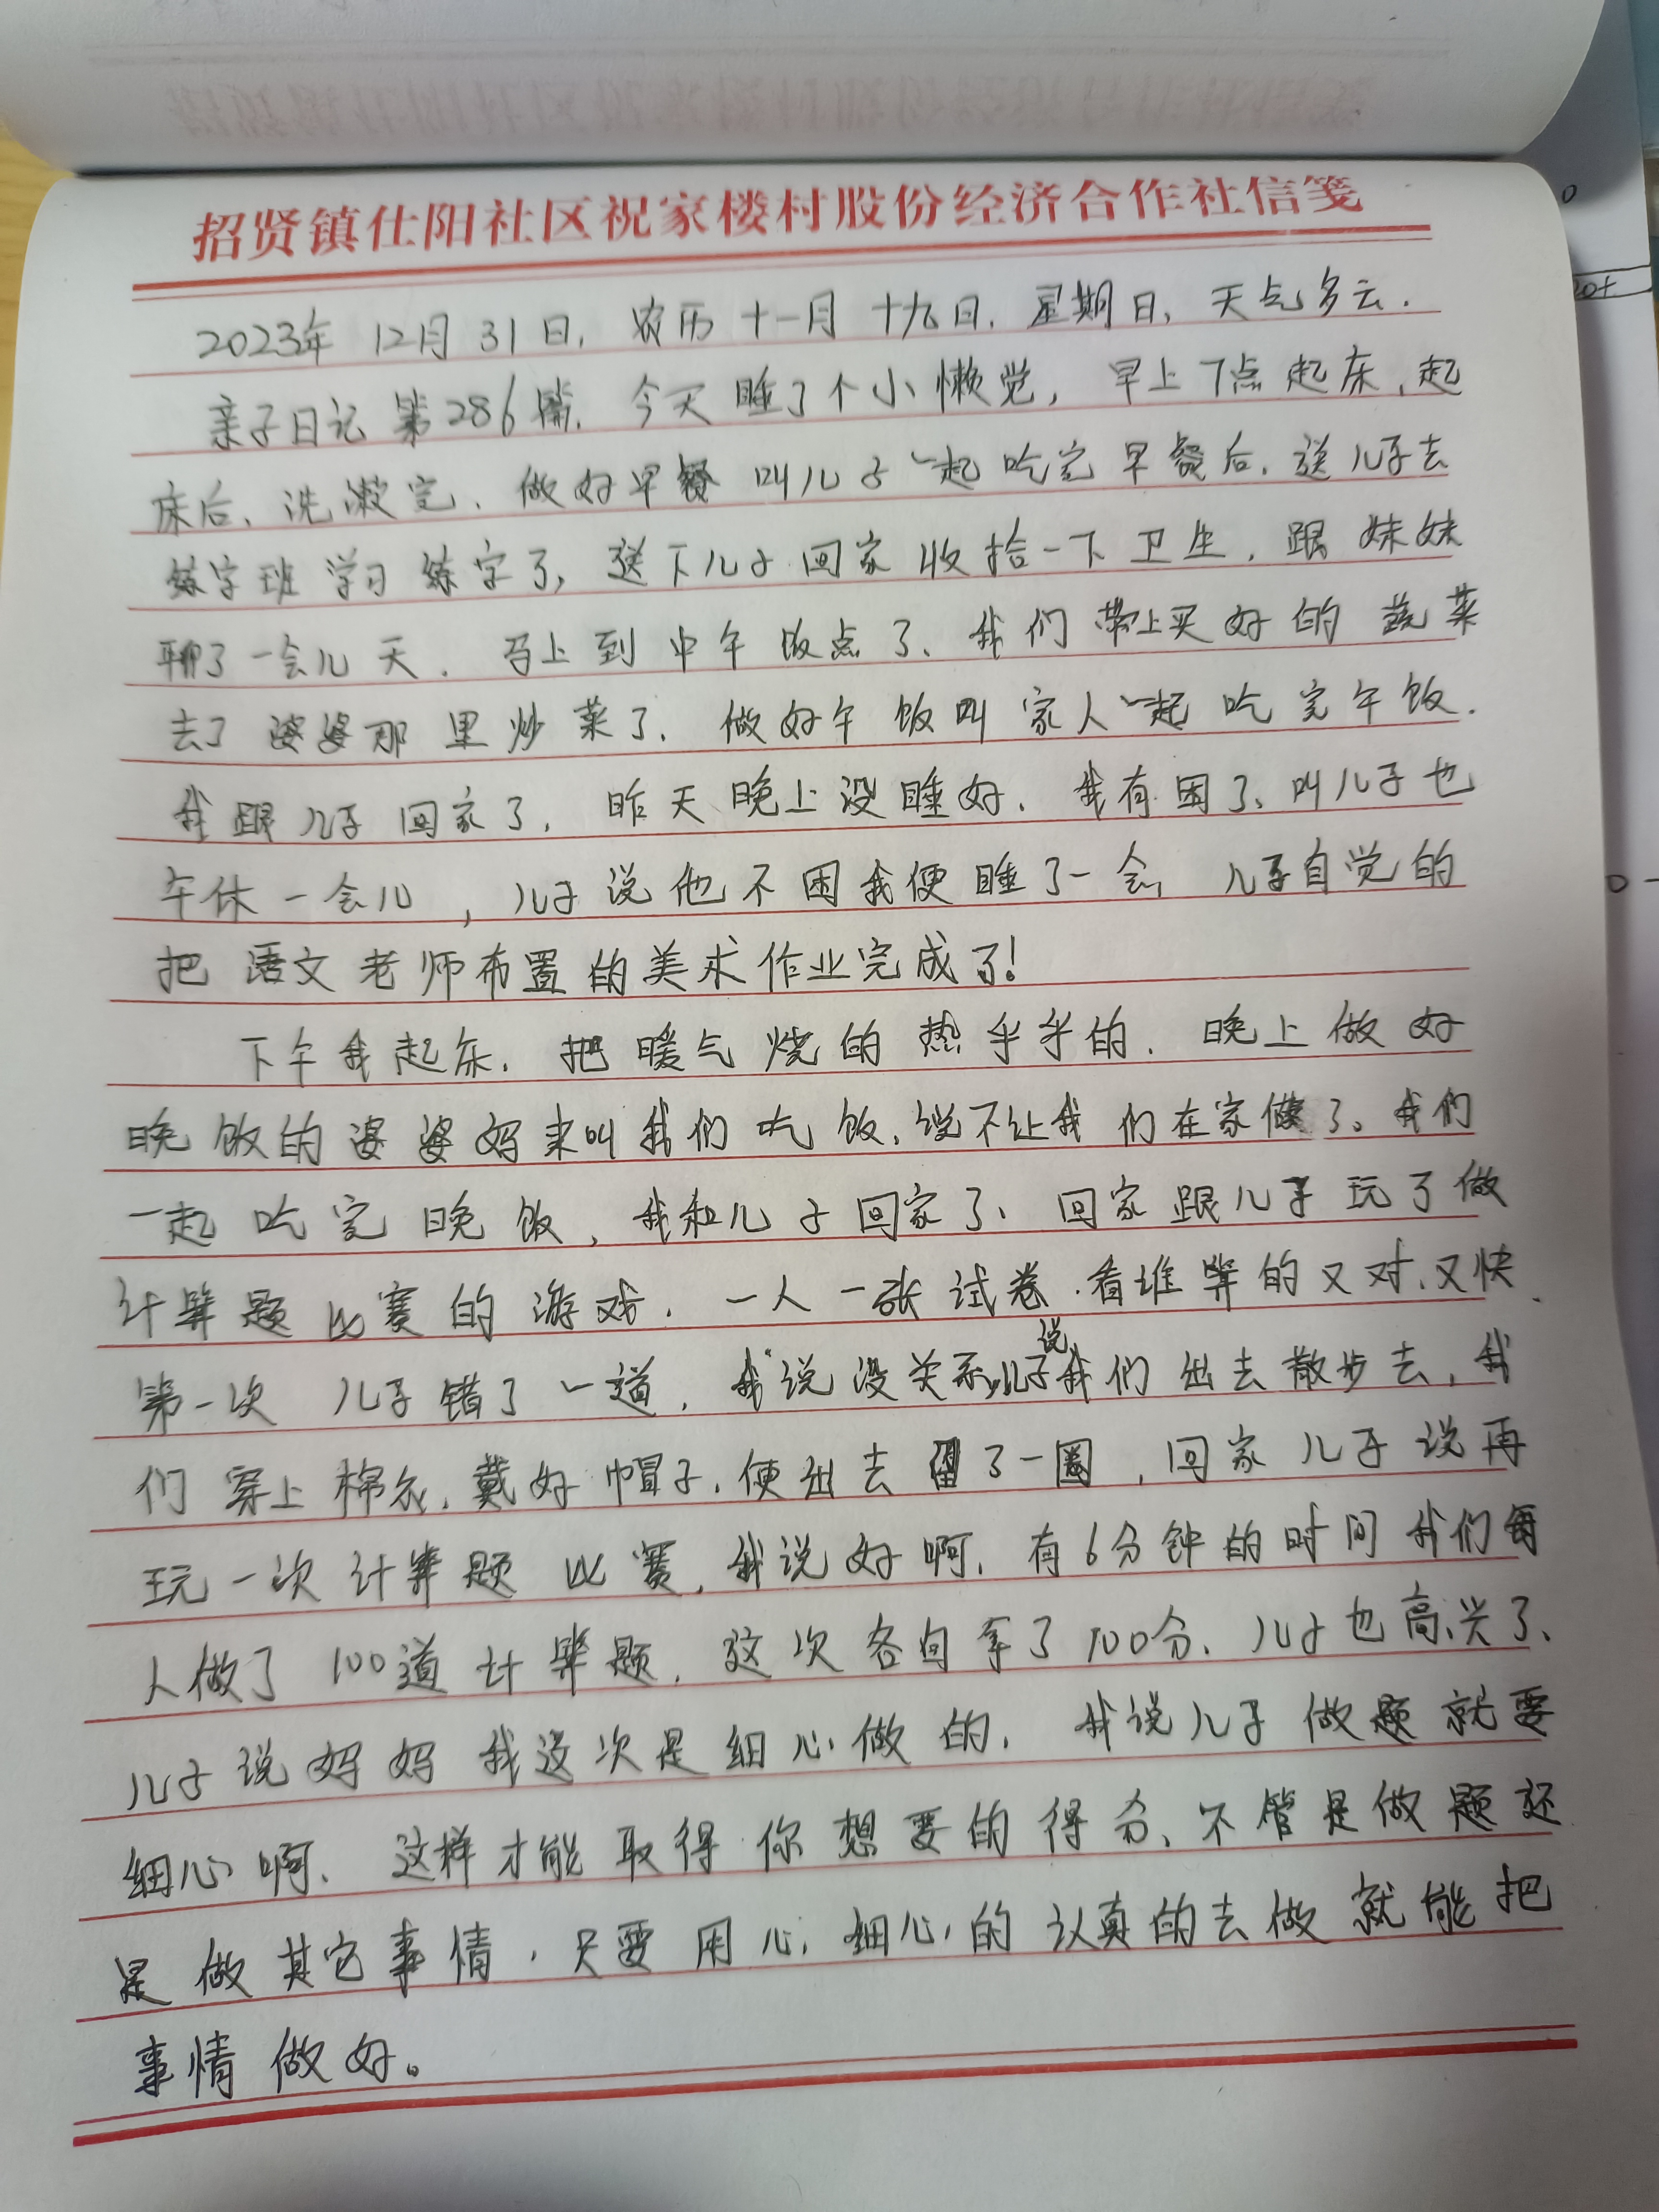 招贤镇仕阳社区祝家楼村股份经济合作社信笺
2023年 12月 31日，农历十一月十九日，星期日，天气多云.
亲子日记第286篇，今天睡了个小懒觉，早上7点起床，起
床后、洗漱完、做好早餐叫儿子一起吃完早餐后，送儿子去
练字班学习练字了，送下儿子回家收拾一下卫生，跟妹妹
聊了一会儿天．马上到中午饭点了、我们带上买好的蔬菜
去了婆婆那里炒菜了．做好午饭叫家人一起吃完午饭．
我跟儿子回家了．昨天晚上没睡好．我有困了、叫儿子也
午休一会儿，儿子说他不困我便睡了一会，儿子自觉的
把语文老师布置的美术作业完成了！
下午我起床，把暖气烧的热乎乎的．晚上做好
晚饭的婆婆妈来叫我们吃饭，说不让我们在家做了。我们
一起吃完晚饭，我和儿子回家了、回家跟儿子玩了做
计算题比赛的游戏．一人一张试卷．看谁算的又对、又快．
第一次儿子错了一道，我说没关系，儿子说我们出去散步去，我
们穿上棉衣，戴好帽子，便出去溜了一圈，回家儿子说再
玩一次计算题比赛，我说好啊，有6分钟的时间我们每
人做了100道计算题，这次各自拿了100分、儿子也高兴了、
儿子说妈妈我这次是细心做的，我说儿子做题就要
细心啊、这样才能取得你想要的得分、不管是做题还
是做其它事情．只要用心，细心的认真的去做就能把
事情做好。
20+